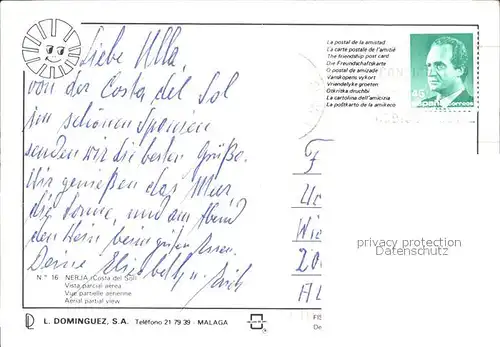 Liebe Ulla,
von der Costa del Sol
im schönen Spanien
senden wir die besten Grüße.
Wir genießen das Meer
die Sonne, und am Abend
den Wein beim guten Essen.
Deine Elisabeth u. Erich
N.º 16 NERJA (Costa del Sol)
Vista parcial aérea
Vue partielle aérienne
Aerial partial view
L. DOMINGUEZ, S.A. Teléfono 21 79 39 - MALAGA
La postal de la amistad
La carte postale de l'amitié
The friendship post card
Die Freundschaftskarte
O postal de amizade
Vänskapens vykort
Vriendelyke groeten
Otkritka druchbi
La cartolina dell'amicizia
La poŝtkarto de la amikeco
45
España correos
F
Wi
privacy protection
Datenschutz
20
AU
FIS
De